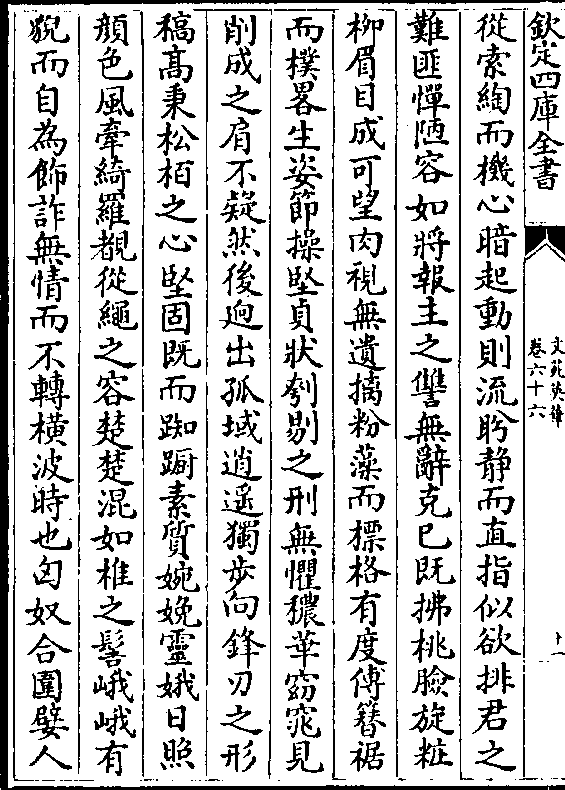 欽定四庫全書
文苑英華
卷六十六
十一
從索綯而機心暗起動則流眄静而直指似欲排君之
難匪憚陋容如將報主之讐無辭克已既拂桃臉旋粧
柳眉目成可望肉視無遺摛粉藻而標格有度傅簪裾
而樸畧生姿節操堅貞狀刳剔之刑無懼穠華窈窕見
削成之肩不疑然後逈出孤域逍遥獨步向鋒刃之形
稿髙秉松栢之心堅固既而踟蹰素質婉娩靈娥日照
顔色風牽綺羅覩從繩之容楚楚混如椎之髻峨峨有
貌而自為飾詐無情而不轉横波時也匈奴合圍嬖人